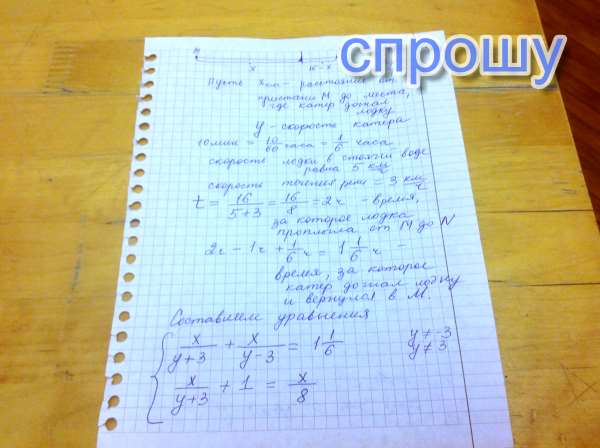 спрошу
M
x
16-x
Пусть x км - расстояние от
пристани M до места,
где катер догнал
лодку
y - скорость катера
10 мин = 10/60 часа = 1/6 часа
скорость лодки в стоячей воде
равна 5 км/ч
скорость течения реки = 3 км/ч
t = 16/(5+3) = 16/8 = 2ч - время,
за которое лодка
проплыла от M до N
2ч - 1ч + 1/6 ч = 1 1/6 ч -
время, за которое
катер догнал лодку
и вернулся в M.
Составляем уравнения
x/(y+3) + x/(y-3) = 1 1/6
y ≠ -3
y ≠ 3
x/(y+3) + 1 = x/8